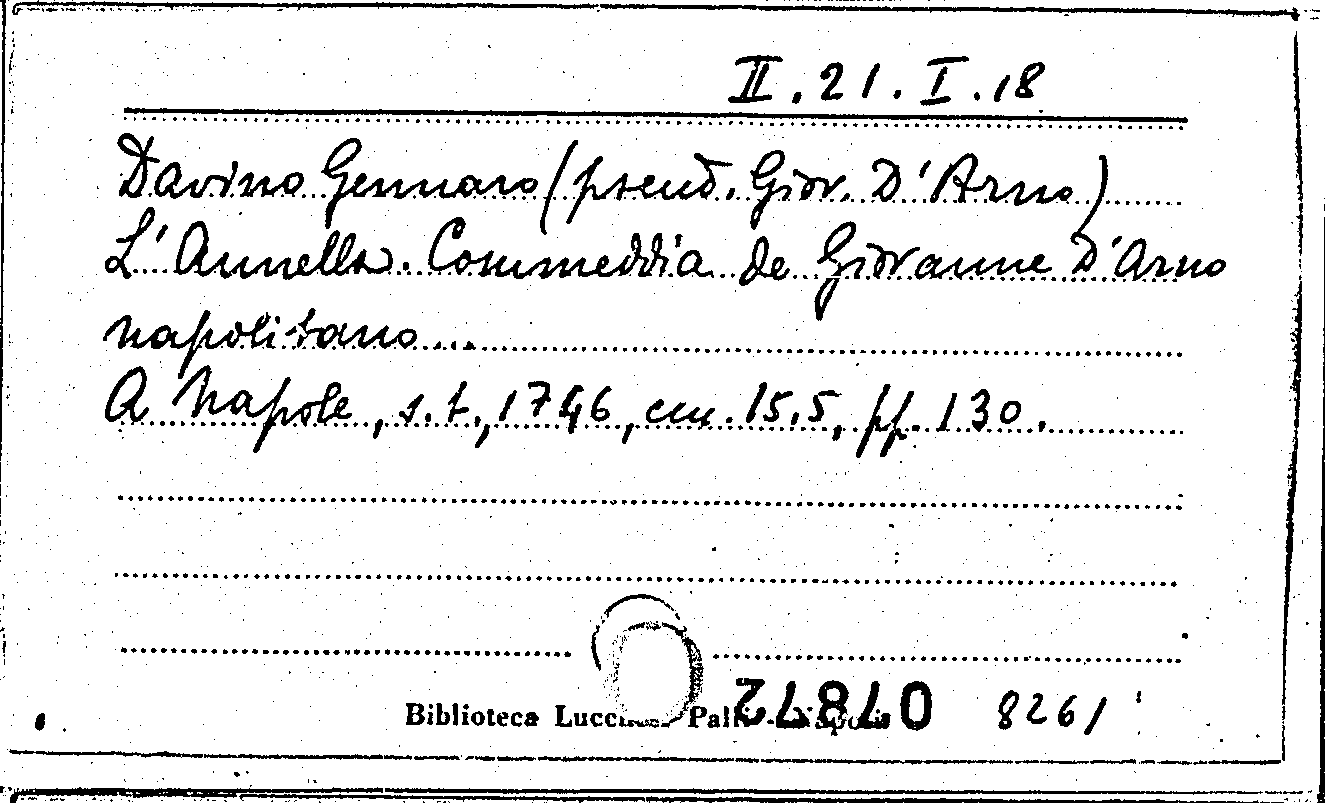 II.21.I.18
Davino Gennaro (pseud. Giov. D'Arno)
L'Annella. Commeddia de Giovanne D'Arno
napolitano...
A Napole, s.t., 1746, cm. 15.5, pp. 130.
Biblioteca Lucchesi Palli - Napoli
07872 8261